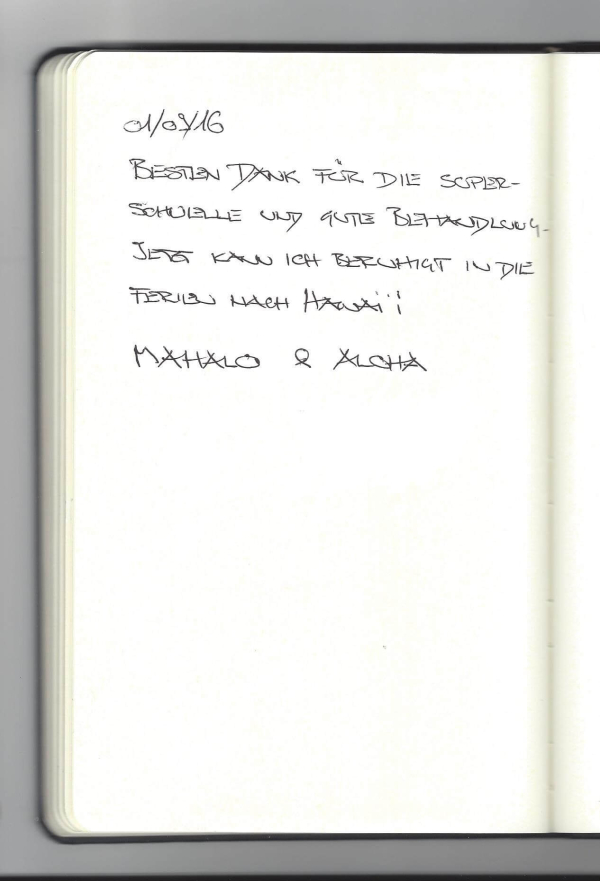 01/09/16
BESTEN DANK FÜR DIE SUPER-
SCHNELLE UND GUTE BEHANDLUNG.
JETZT KANN ICH BERUHIGT IN DIE
FERIEN NACH HAWAI'I
MAHALO & ALOHA